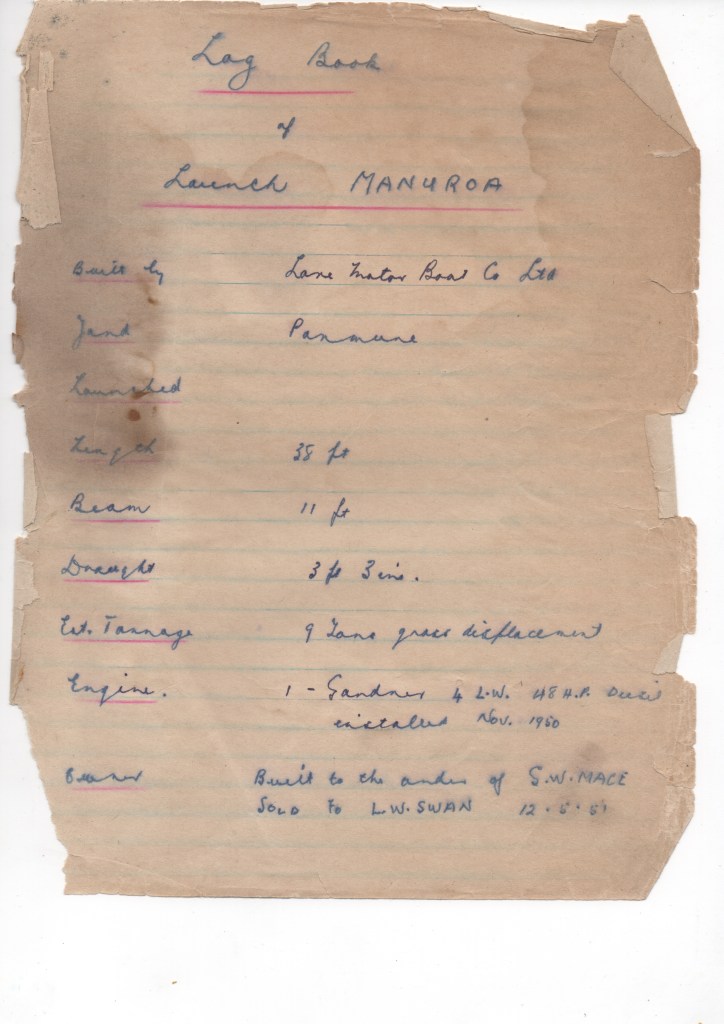 Log Book
of
Launch MANUROA
Built by Lane Motor Boat Co Ltd
Yard Panmure
Launched
Length 38 ft
Beam 11 ft
Draught 3 ft 3 ins.
Est. Tonnage 9 Tons gross displacement
Engine. 1 - Gardner 4 L.W. 48 H.P. Diesel
installed Nov. 1950
Owner Built to the order of S.W. MACE
SOLD To L.W. SWAN 12.5.